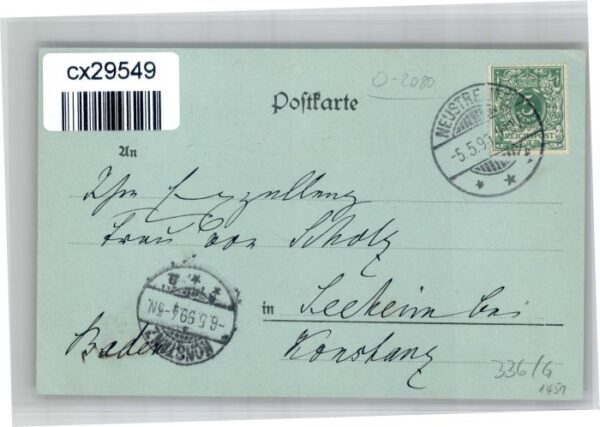 cx29549
O-2080
Postkarte
NEUSTRE
-5.5.9
5
REICHSPOST
An
Ihre Exzellenz
Frau von Scholz
in Seeheim bei
Konstanz
Baden
KONSTANZ
-6.5.99.4-5N.
336/G
1451